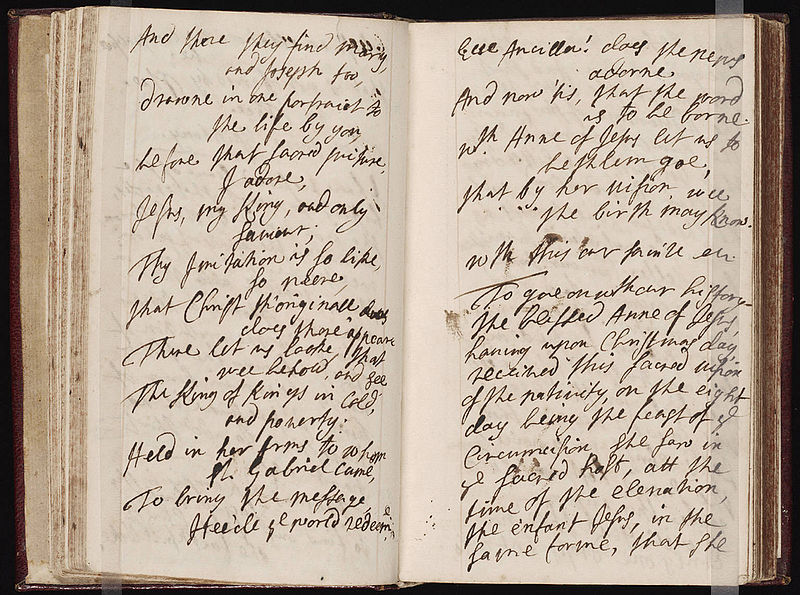 And there they find mary,
and Joseph too,
drawne in one portraict to
the life by you
before that sacred picture,
I adore,
Jesus, my King, and only
saviour,
Thy Imitation is so like,
so neere,
that Christ th'originall
does there appeare
There let us looke, that
wee behold and see
The King of Kings in cold,
and poverty.
Held in her arms to whom
st. Gabriel came,
To bring the message
Hee'ld ye world redeeme
Ecce Ancilla! does the news
adorne
And now 'tis, that the word
is to be borne.
wth Anne of Jesus let us to
bethlem goe,
that by her vision wee
the birth may know.
with this our sainte
To goe on with our history
the blessed Anne of Jesus,
having upon Christmas day
received this sacred vision
of the nativity, on the eight
day being the feast of ye
Circumcision she saw in
ye sacred host, att the
time of the elevation,
the enfant Jesus, in the
same forme, that she